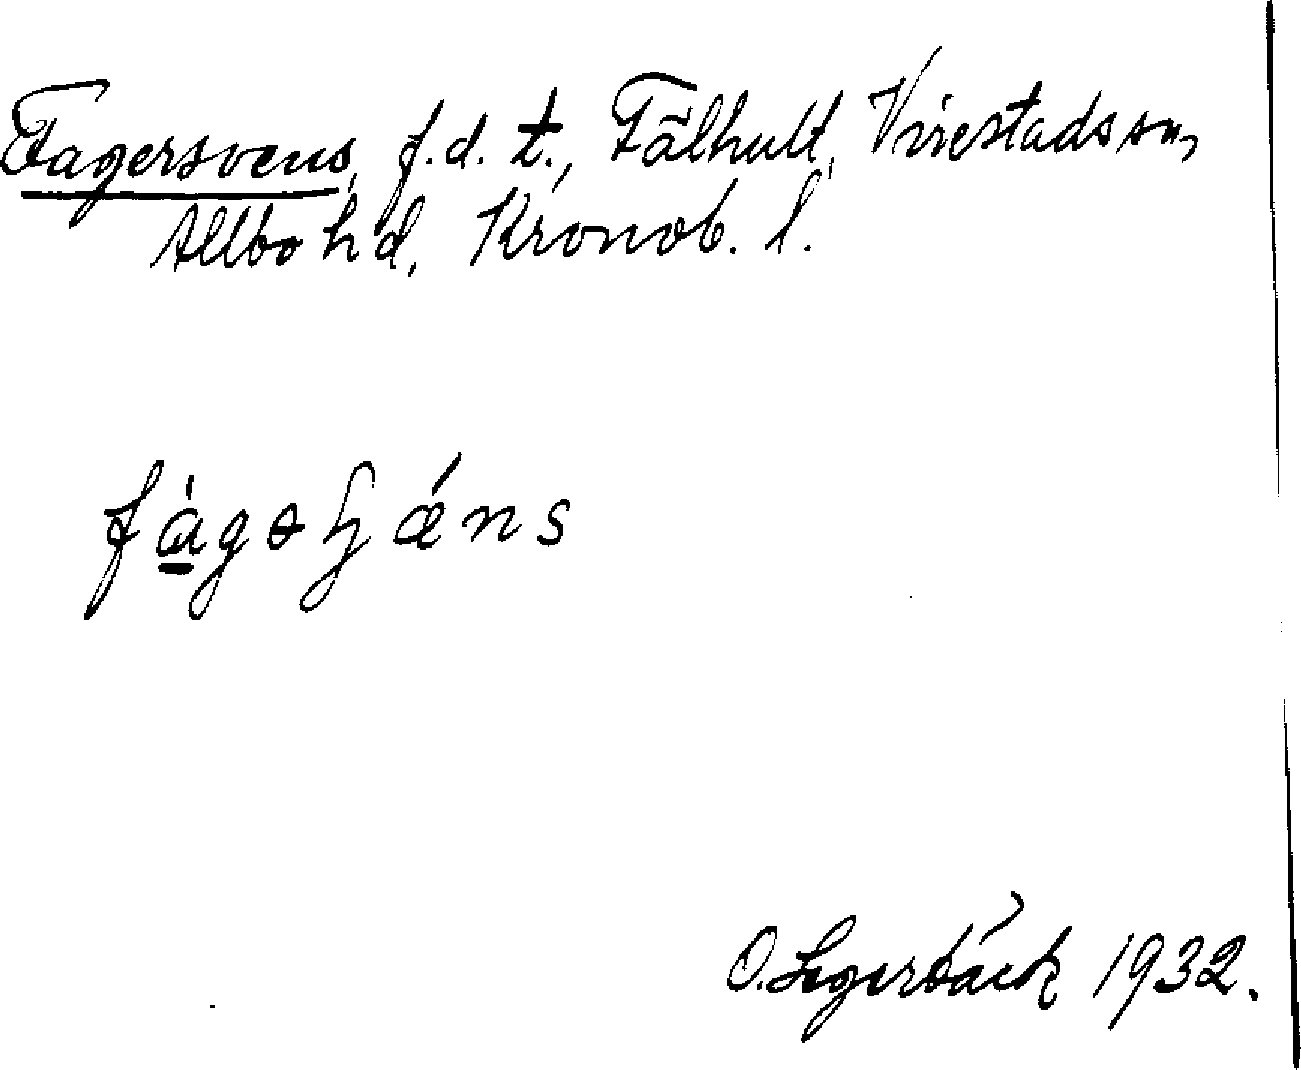 Fagersvens, f.d. t., Fälhult, Virestads sn,
Allbo hd, Kronob. l.
O. Segerbäck 1932.